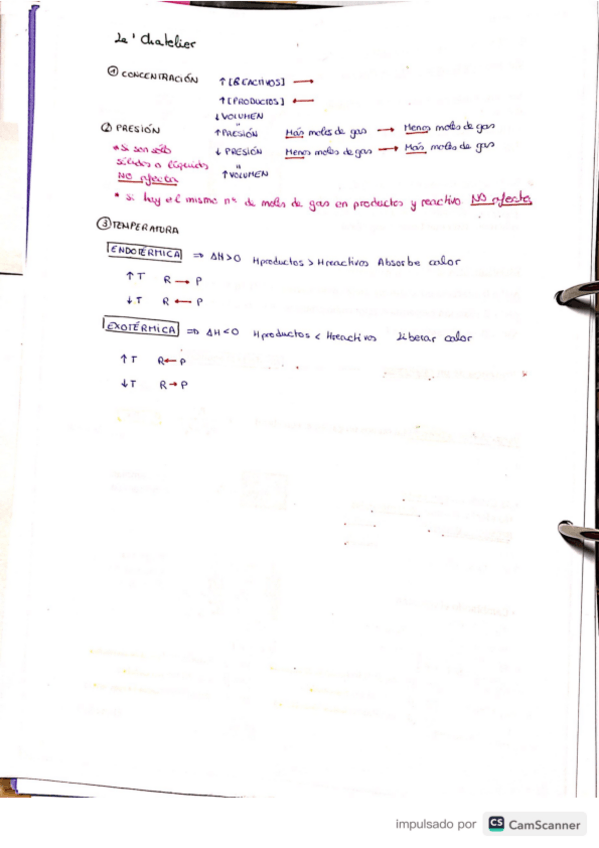 Le' Chatelier
① CONCENTRACIÓN ↑[REACTIVOS] →
↑[PRODUCTOS] ←
↓VOLUMEN
② PRESIÓN ↑PRESIÓN Más moles de gas → Menos moles de gas
* Si son sólo ↓ PRESIÓN Menos moles de gas → Más moles de gas
sólidos o líquidos ↑VOLUMEN
NO afectan
* si hay el mismo nº de moles de gas en productos y reactivo NO afecta
③ TEMPERATURA
ENDOTÉRMICA ⇒ ΔH>0 Hproductos > Hreactivos Absorbe calor
↑T R → P
↓T R ← P
EXOTÉRMICA ⇒ ΔH<0 Hproductos < Hreactivos Liberar calor
↑T R ← P
↓T R → P
impulsado por CS CamScanner